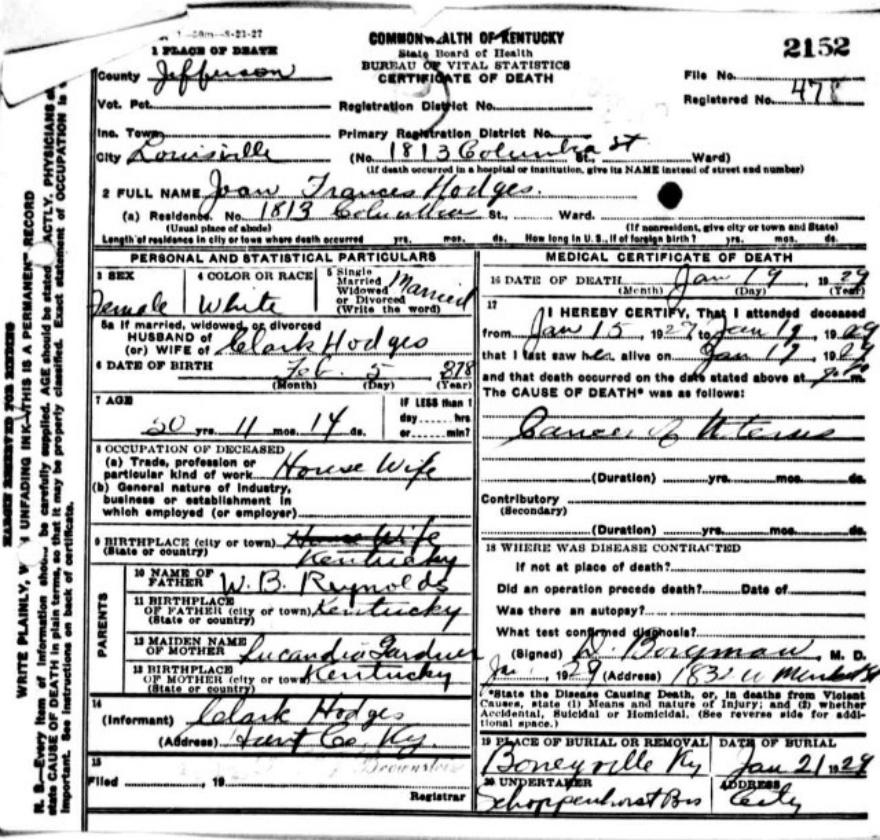 -50m-8-21-27
1 PLACE OF DEATH
County Jefferson
Vot. Pct.
Inc. Town
City Louisville
COMMONWEALTH OF KENTUCKY
State Board of Health
BUREAU OF VITAL STATISTICS
CERTIFICATE OF DEATH
Registration District No.
Primary Registration District No.
(No. 1813 Columbia St St., Ward)
(If death occurred in a hospital or institution, give its NAME instead of street and number)
2152
File No.
Registered No. 478
2 FULL NAME Joan Frances Hodges.
(a) Residence. No. 1813 St., Ward.
(Usual place of abode) (If nonresident, give city or town and State)
Length of residence in city or town where death occurred yrs. mos. ds. How long in U. S., if of foreign birth? yrs. mos. ds.
PERSONAL AND STATISTICAL PARTICULARS
3 SEX Female
4 COLOR OR RACE White
5 Single Married Widowed or Divorced (Write the word) Married
5a If married, widowed, or divorced
HUSBAND of
(or) WIFE of Clark Hodges
6 DATE OF BIRTH Feb. 5 878
(Month) (Day) (Year)
7 AGE
50 yrs. 11 mos. 14 ds.
IF LESS than 1
day hrs
or min?
8 OCCUPATION OF DECEASED
(a) Trade, profession or
particular kind of work House Wife
(b) General nature of Industry,
business or establishment in
which employed (or employer)
9 BIRTHPLACE (city or town) House Wife
(State or country) Kentucky
PARENTS
10 NAME OF
FATHER W. B. Reynolds
11 BIRTHPLACE
OF FATHER (city or town) Kentucky
(State or country)
12 MAIDEN NAME
OF MOTHER Gardner
13 BIRTHPLACE
OF MOTHER (city or town) Kentucky
(State or country)
14
(Informant) Clark Hodges
(Address) Co. Ky.
15
Filed , 19
Registrar
MEDICAL CERTIFICATE OF DEATH
16 DATE OF DEATH Jan 19 1929
(Month) (Day) (Year)
17
I HEREBY CERTIFY, That I attended deceased
from Jan 15, 1927, to Jan 19, 1929
that I last saw her alive on Jan 19, 1929
and that death occurred on the date stated above at m.
The CAUSE OF DEATH* was as follows:
Cancer of Uterus
(Duration) yrs. mos. ds.
Contributory
(Secondary)
(Duration) yrs. mos. ds.
18 WHERE WAS DISEASE CONTRACTED
If not at place of death?
Did an operation precede death? Date of
Was there an autopsy?
What test confirmed diagnosis?
(Signed) D. Borgman, M. D.
, 1929 (Address) 1832 W Market St
*State the Disease Causing Death, or, in deaths from Violent
Causes, state (1) Means and nature of Injury; and (2) whether
Accidental, Suicidal or Homicidal. (See reverse side for addi-
tional space.)
19 PLACE OF BURIAL OR REMOVAL
Boneyville Ky
DATE OF BURIAL
Jan 21 1929
20 UNDERTAKER
Schoppenhorst Bros
ADDRESS
City
MARGIN RESERVED FOR BINDING
WRITE PLAINLY, UNFADING INK—THIS IS A PERMANENT RECORD
N. B.—Every item of information should be carefully supplied. AGE should be stated EXACTLY. PHYSICIANS
state CAUSE OF DEATH in plain terms, so that it may be properly classified. Exact statement of OCCUPATION is
important. See instructions on back of certificate.